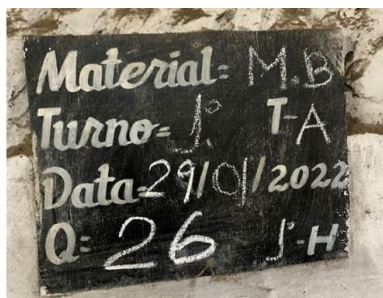 Material= M.B
Turno= J. T-A
Data=29/01/2022
Q= 26 J-H